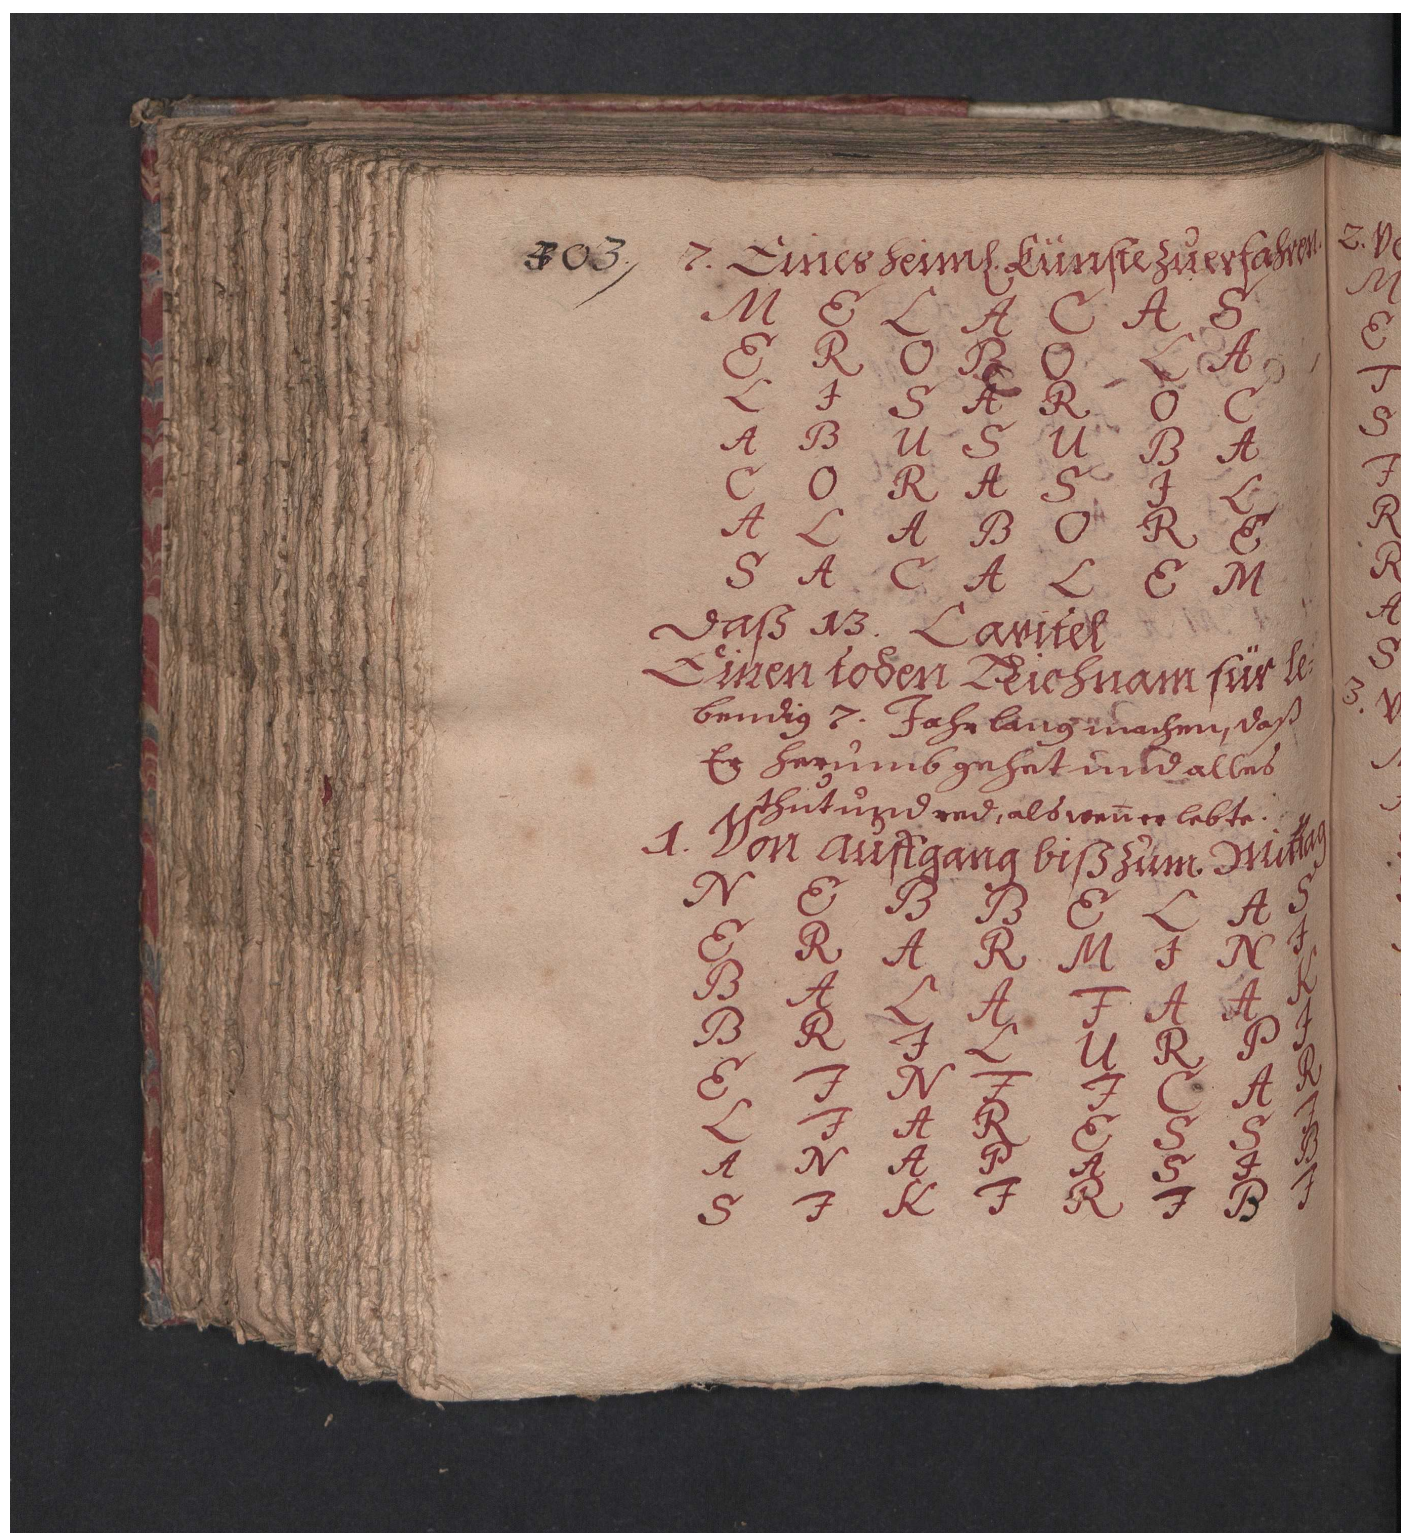 303. 7. Eines heiml. Künste zu erfahren.
M E L A C A S
E R O B O L A
L I S A R O C
A B U S U B A
C O R A S I L
A L A B O R E
S A C A L E M
Daß 13. Capitel
Einen toden Leichnam für le-
bendig 7. Jahr lang machen, daß
Er herumb gehet und alles
thut und red, als wen̄ er lebte.
1. Von auffgang biß zum Mittag
N E B B E L A S
E R A R M I N I
B A L A T A A K
B R I L U R P I
E T N T I C A R
L I A R E S S I
A N A P A S I B
S I K I R I B I
2. Vo
M
E
T
S
I
R
R
A
S
3. V